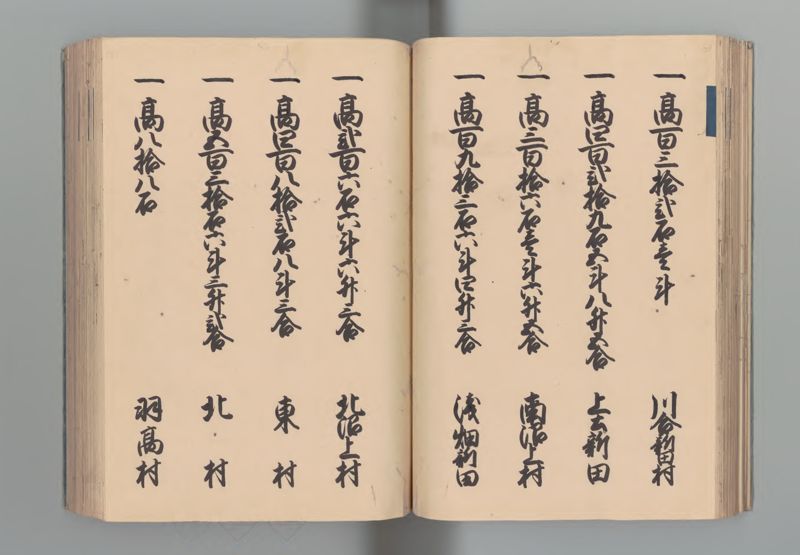 一高百三拾弐石壱斗 川合新田村
一高四百弐拾九石五斗八升五合 上土新田
一高三百拾六石壱斗六升五合 南沼上村
一高百九拾三石六斗四升三合 浅畑新田
一高弐百六石六斗六升三合 北沼上村
一高四百八拾弐石八斗三合 東村
一高五百三拾石六斗三升弐合 北村
一高八拾八石 羽高村